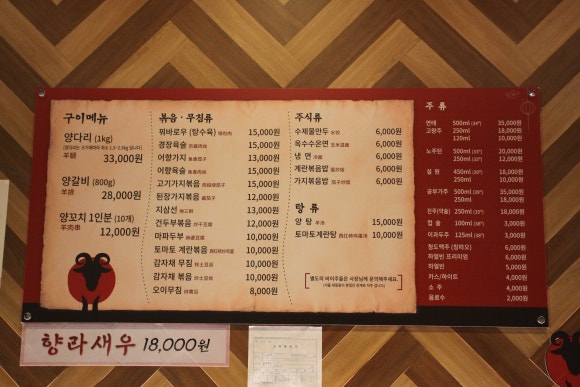 구이메뉴
양다리 (1kg)
羊腿 33,000원
양갈비 (800g)
羊排 28,000원
양꼬치 1인분 (10개)
羊肉串 12,000원
볶음 · 무침류
꿔바로우 (탕수육) 锅包肉 15,000원
경장육슬 京酱肉丝 15,000원
어향가지 鱼香茄子 13,000원
어향육슬 鱼香肉丝 15,000원
고기가지볶음 肉段烧茄子 15,000원
된장가지볶음 酱茄子 12,000원
지삼선 地三鲜 13,000원
건두부볶음 炒干豆腐 12,000원
마파두부 麻婆豆腐 10,000원
토마토 계란볶음 西红柿炒鸡蛋 10,000원
감자채 무침 拌土豆丝 10,000원
감자채 볶음 炒土豆丝 10,000원
오이무침 拌黄瓜 8,000원
주식류
수제물만두 水饺 6,000원
옥수수온면 玉米温面 6,000원
냉 면 冷面 6,000원
계란볶음밥 蛋炒饭 6,000원
가지볶음밥 茄子炒饭 6,000원
탕 류
양 탕 羊汤 15,000원
토마토계란탕 西红柿鸡蛋汤 10,000원
별도의 바이주들은 사장님께 문의해주세요.
주 류
연태 500ml (34º) 35,000원
고량주 250ml 18,000원
120ml 10,000원
노주탄 500ml 20,000원
250ml 12,000원
설 원 450ml 18,000원
250ml 10,000원
공부가주 500ml 35,000원
250ml 18,000원
진주(약술) 250ml 3,000원
컵 술 100ml 3,000원
이과두주 125ml 3,000원
청도맥주 (칭따오) 6,000원
하얼빈 프리미엄 6,000원
하얼빈 5,000원
카스/하이트 4,000원
소 주 4,000원
음료수 2,000원
향라새우 18,000원